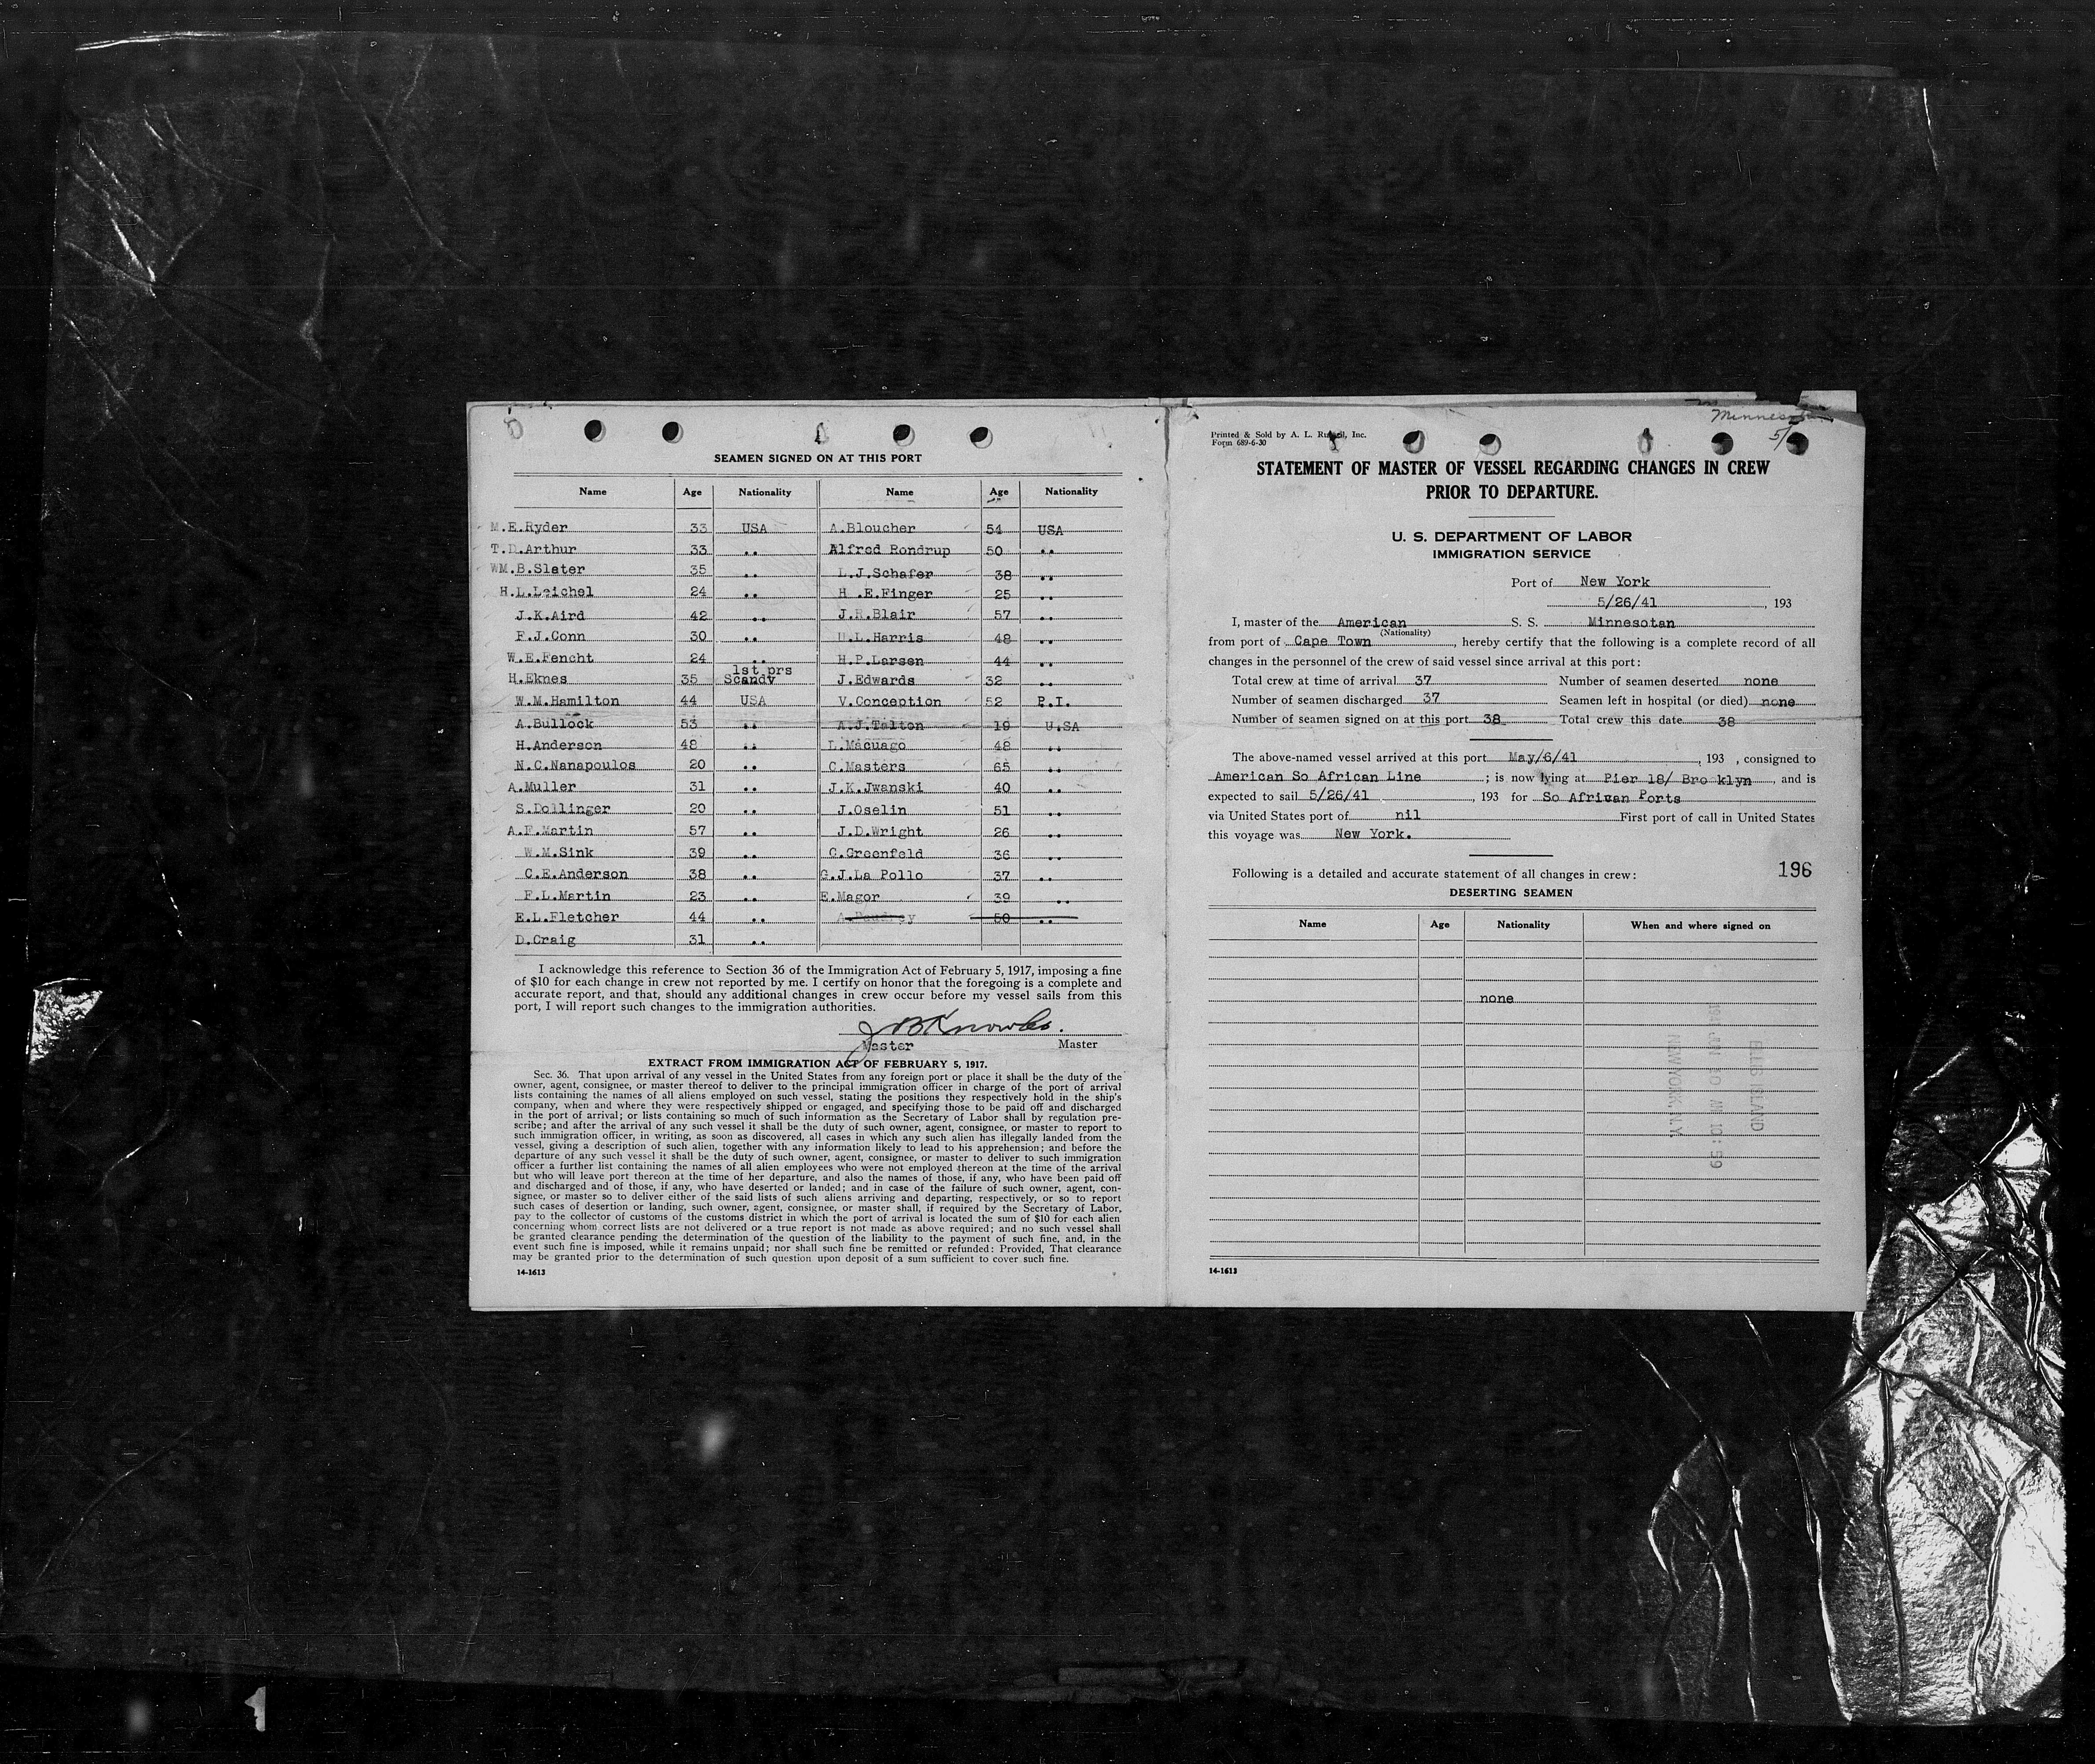 SEAMEN SIGNED ON AT THIS PORT
Name Age Nationality Name Age Nationality
M.E.Ryder 33 USA A.Bloucher 54 USA
T.D.Arthur 33 .. Alfred Rondrup 50 ..
WM.B.Slater 35 .. L.J.Schafer 38 ..
H.L.Leichel 24 .. H .E.Finger 25 ..
J.K.Aird 42 .. J.R.Blair 57 ..
F.J.Conn 30 .. H.L.Harris 48 ..
W.E.Fencht 24 .. H.P.Larsen 44 ..
H.Eknes 35 1st prs Scandy J.Edwards 32 ..
W.M.Hamilton 44 USA V.Conception 52 P.I.
A.Bullock 53 .. A.J.Talton 19 U.SA
H.Anderson 48 .. L.Macuago 48 ..
N.C.Nanapoulos 20 .. C.Masters 65 ..
A.Muller 31 .. J.K.Jwanski 40 ..
S.Dollinger 20 .. J.Oselin 51 ..
A.F.Martin 57 .. J.D.Wright 26 ..
W.M.Sink 39 .. C.Greenfeld 36 ..
C.E.Anderson 38 .. G.J.La Pollo 37 ..
F.L.Martin 23 .. E.Magor 39 ..
E.L.Fletcher 44 .. 50 ..
D.Craig 31 ..
I acknowledge this reference to Section 36 of the Immigration Act of February 5, 1917, imposing a fine
of $10 for each change in crew not reported by me. I certify on honor that the foregoing is a complete and
accurate report, and that, should any additional changes in crew occur before my vessel sails from this
port, I will report such changes to the immigration authorities.
J B Knowles.
Master Master
EXTRACT FROM IMMIGRATION ACT OF FEBRUARY 5, 1917.
Sec. 36. That upon arrival of any vessel in the United States from any foreign port or place it shall be the duty of the
owner, agent, consignee, or master thereof to deliver to the principal immigration officer in charge of the port of arrival
lists containing the names of all aliens employed on such vessel, stating the positions they respectively hold in the ship's
company, when and where they were respectively shipped or engaged, and specifying those to be paid off and discharged
in the port of arrival; or lists containing so much of such information as the Secretary of Labor shall by regulation pre-
scribe; and after the arrival of any such vessel it shall be the duty of such owner, agent, consignee, or master to report to
such immigration officer, in writing, as soon as discovered, all cases in which any such alien has illegally landed from the
vessel, giving a description of such alien, together with any information likely to lead to his apprehension; and before the
departure of any such vessel it shall be the duty of such owner, agent, consignee, or master to deliver to such immigration
officer a further list containing the names of all alien employees who were not employed thereon at the time of the arrival
but who will leave port thereon at the time of her departure, and also the names of those, if any, who have been paid off
and discharged and of those, if any, who have deserted or landed; and in case of the failure of such owner, agent, con-
signee, or master so to deliver either of the said lists of such aliens arriving and departing, respectively, or so to report
such cases of desertion or landing, such owner, agent, consignee, or master shall, if required by the Secretary of Labor,
pay to the collector of customs of the customs district in which the port of arrival is located the sum of $10 for each alien
concerning whom correct lists are not delivered or a true report is not made as above required; and no such vessel shall
be granted clearance pending the determination of the question of the liability to the payment of such fine, and, in the
event such fine is imposed, while it remains unpaid; nor shall such fine be remitted or refunded: Provided, That clearance
may be granted prior to the determination of such question upon deposit of a sum sufficient to cover such fine.
14-1613
5/
Printed & Sold by A. L. Russell, Inc.
Form 689-6-30
STATEMENT OF MASTER OF VESSEL REGARDING CHANGES IN CREW
PRIOR TO DEPARTURE.
U. S. DEPARTMENT OF LABOR
IMMIGRATION SERVICE
Port of New York
5/26/41, 193
I, master of the American S. S. Minnesotan
(Nationality)
from port of Cape Town, hereby certify that the following is a complete record of all
changes in the personnel of the crew of said vessel since arrival at this port:
Total crew at time of arrival 37 Number of seamen deserted none
Number of seamen discharged 37 Seamen left in hospital (or died) none
Number of seamen signed on at this port 38 Total crew this date 38
The above-named vessel arrived at this port May/6/41, 193 , consigned to
American So African Line ; is now lying at Pier 18/ Bro klyn, and is
expected to sail 5/26/41, 193 for So African Ports
via United States port of nil First port of call in United States
this voyage was New York.
196
Following is a detailed and accurate statement of all changes in crew:
DESERTING SEAMEN
Name Age Nationality When and where signed on
none
ELLIS ISLAND
JUN 30 AM 10:59
NEW YORK, N.Y.
14-1613